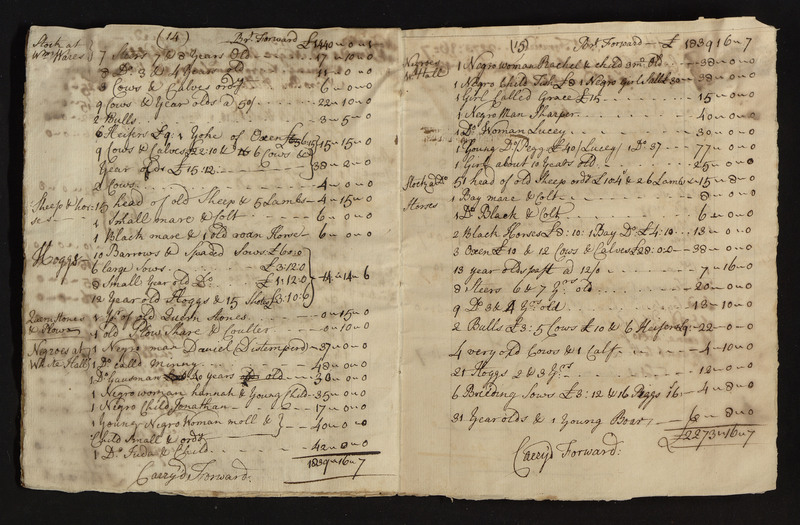 (14)
Stock at Wm Wares Brt Forward £1440 0 1
7 Steers 7 & 8 Years Old 17 10 0
8 Do 3 & 4 Years Old 11 0 0
3 Cows & Calves ordy 6 0 0
9 Cows & Year olds a 50/ 22 10 0
2 Bulls 3 5 0
6 Heifers £9 1 Yoke of Oxen 15 15 0
9 Cows & Calves £22:10 & 6 Cows &
Year olds £15:12 38 2 0
2 Cows 4 0 0
Sheep & horses 15 head of old Sheep & 5 Lambs 4 15 0
1 Small mare & Colt 6 0 0
1 Black mare & 1 old roan Horse 6 0 0
Hoggs 10 Barrows & Spaded Sows £6:0:0
6 large Sows £3:12:0
8 Small Year old Do £1:12:0 14 14 6
12 Year old Hoggs & 15 Shotes £3:10:6
Quern Stones & Plows 1 Pr of old Quern Stones 0 15 0
1 old Plow Share & Coulter 0 10 0
Negroes at White Hall 1 Negro man Daniel (Distemperd) 37 0 0
1 Do called Minny 48 0 0
1 Do 40 Years old 30 0 0
1 Negro woman hannah & Young Child 35 0 0
1 Negro Child Jonathan 17 0 0
1 Young Negro Woman moll &
Child Small & ordy 40 0 0
1 Do Juda & Child 42 0 0
1839 16 7
Carryd Forward
(15)
Brt Forward £ 1839 16 7
Negroes Wt Hall 1 Negro woman Rachel & Child 3 mo Old 38 0 0
1 Negro Child £8 1 Negro Girl 30 38 0 0
1 Girl Called Grace £15 15 0 0
1 Negro Man Sharper 40 0 0
1 Do Woman Lucey 30 0 0
1 Young Do Pegg £40 (Lucey) 1 Do 37 77 0 0
1 Girl about 10 Years old 25 0 0
Stock a Do 51 head of old Sheep ordy £10 4s & 26 Lambs 15 8 0
Horses 1 Bay mare & Colt 8 0 0
1 Do Black & Colt 6 0 0
2 Black Horses £8:10: 1 Bay Do £4:10 13 0 0
3 Oxen £10 & 12 Cows & Calves £28:0:0 38 0 0
13 year olds past a 12/0 7 16 0
8 Steers 6 & 7 Yrs old 20 0 0
9 Do 3 & 4 Yrs old 13 10 0
2 Bulls £3: 5 Cows £10 & 6 Heifers £9 22 0 0
4 very old Cows & 1 Calf 4 10 0
21 Hoggs 2 & 3 Yrs 12 0 0
6 Breeding Sows £3:12 & 16 Piggs 16 4 8 0
31 Year olds & 1 Young Boar 6 0 0
£2273 16 7
Carryd Forward: